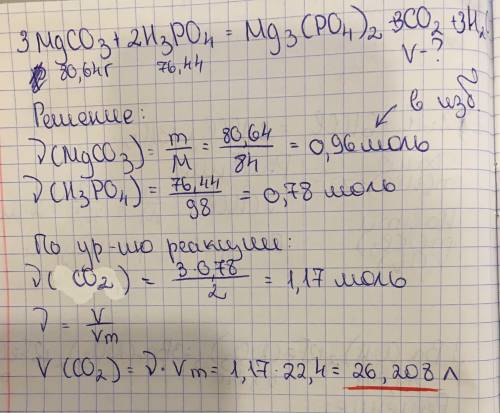 3MgCO3 + 2H3PO4 = Mg3(PO4)2 + 3CO2 + 3H2
80,64г 76,44 V-?
Решение: в изб.
ν(MgCO3) = m/M = 80,64/84 = 0,96 моль
ν(H3PO4) = 76,44/98 = 0,78 моль
По ур-ию реакции:
ν(CO2) = 3·0,78/2 = 1,17 моль
ν = V/Vm
V(CO2) = ν·Vm = 1,17·22,4 = 26,208 л